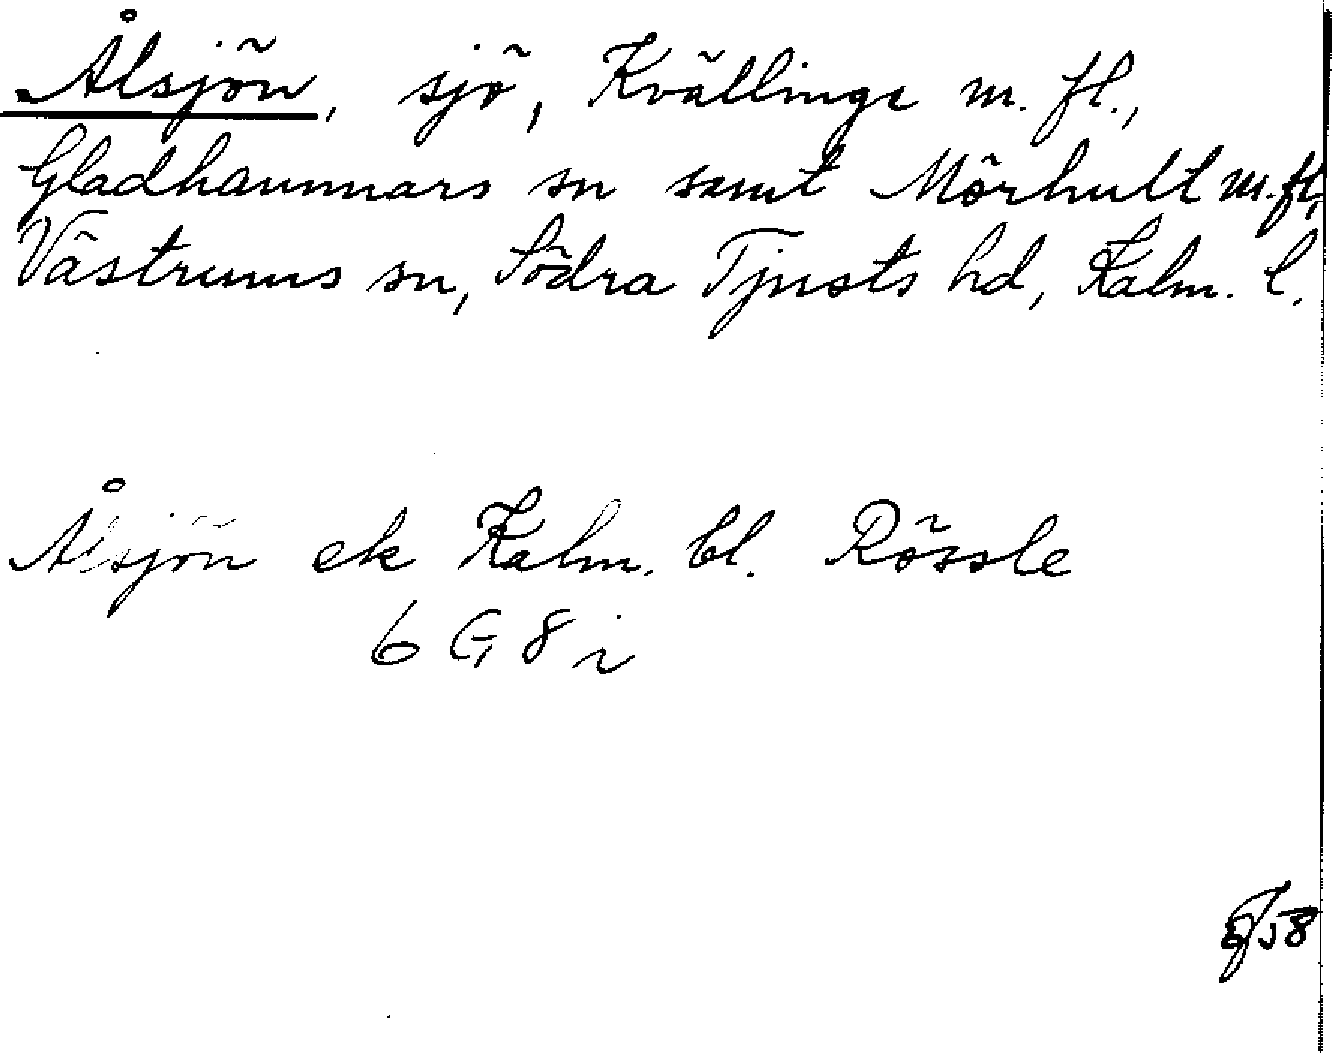 Ålsjön, sjö, Kvällinge m. fl.,
Gladhammars sn samt Mörhult m. fl,
Västrums sn, Södra Tjusts hd, Kalm. l.
Ålsjön ek Kalm. bl. Rössle
6 G 8 i